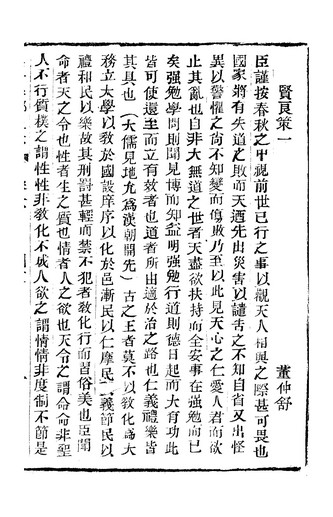 賢良策一
董仲舒
臣謹按春秋之中視前世已行之事以觀天人相與之際甚可畏也
國家將有失道之敗而天迺先出災害以譴告之不知自省又出怪
異以警懼之尙不知變而傷敗乃至以此見天心之仁愛人君而欲
止其亂也自非大無道之世者天盡欲扶持而全安事在強勉而已
矣強勉學問則聞見博而知益明強勉行道則德日起而大有功此
皆可使還至而立有效者也道者所由適於治之路也仁義禮樂皆
其具也（大儒見地九為漢朝開先）古之王者莫不以敎化爲大
務立太學以敎於國設庠序以化於邑漸民以仁摩民以義節民以
禮和民以樂故其刑罰甚輕而禁不犯者敎化行而習俗美也臣聞
命者天之令也性者生之質也情者人之欲也天令之謂命命非聖
人不行質樸之謂性性非敎化不成人欲之謂情情非度制不節是